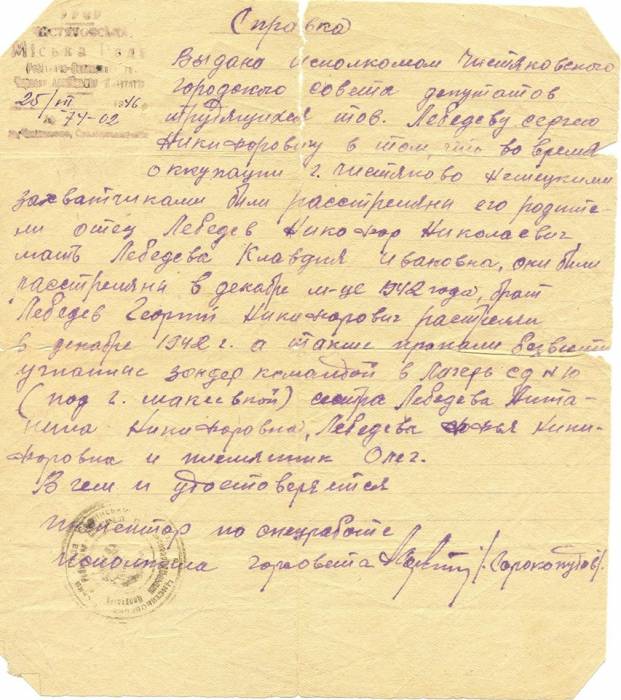 Справка
УРСР
Чистяковська
Міська Рада
25/VII 1946
№ 74-02
Выдана исполкомом Чистяковского
городского совета депутатов
трудящихся тов. Лебедеву Сергею
Никифоровичу в том, что во время
оккупации г. Чистяково немецкими
захватчиками были расстреляни его родите-
ли отец Лебедев Никифор Николаевич
мать Лебедева Клавдия Ивановна, они були
расстреляни в декабре м-це 1942 года, брат
Лебедев Георгий Никифорович растрелян
в декабре 1942 г. а также пропали безвести
угнаные зондер командой в лагерь СД
(под г. Макеевкой) сестра Лебедева Капита-
лина Никифоровна, Лебедева Ники-
форовна и племятник Олег.
В чем и удостоверяется
Инспектор по спецработе
Исполкома горсовета /Сорокопудов/